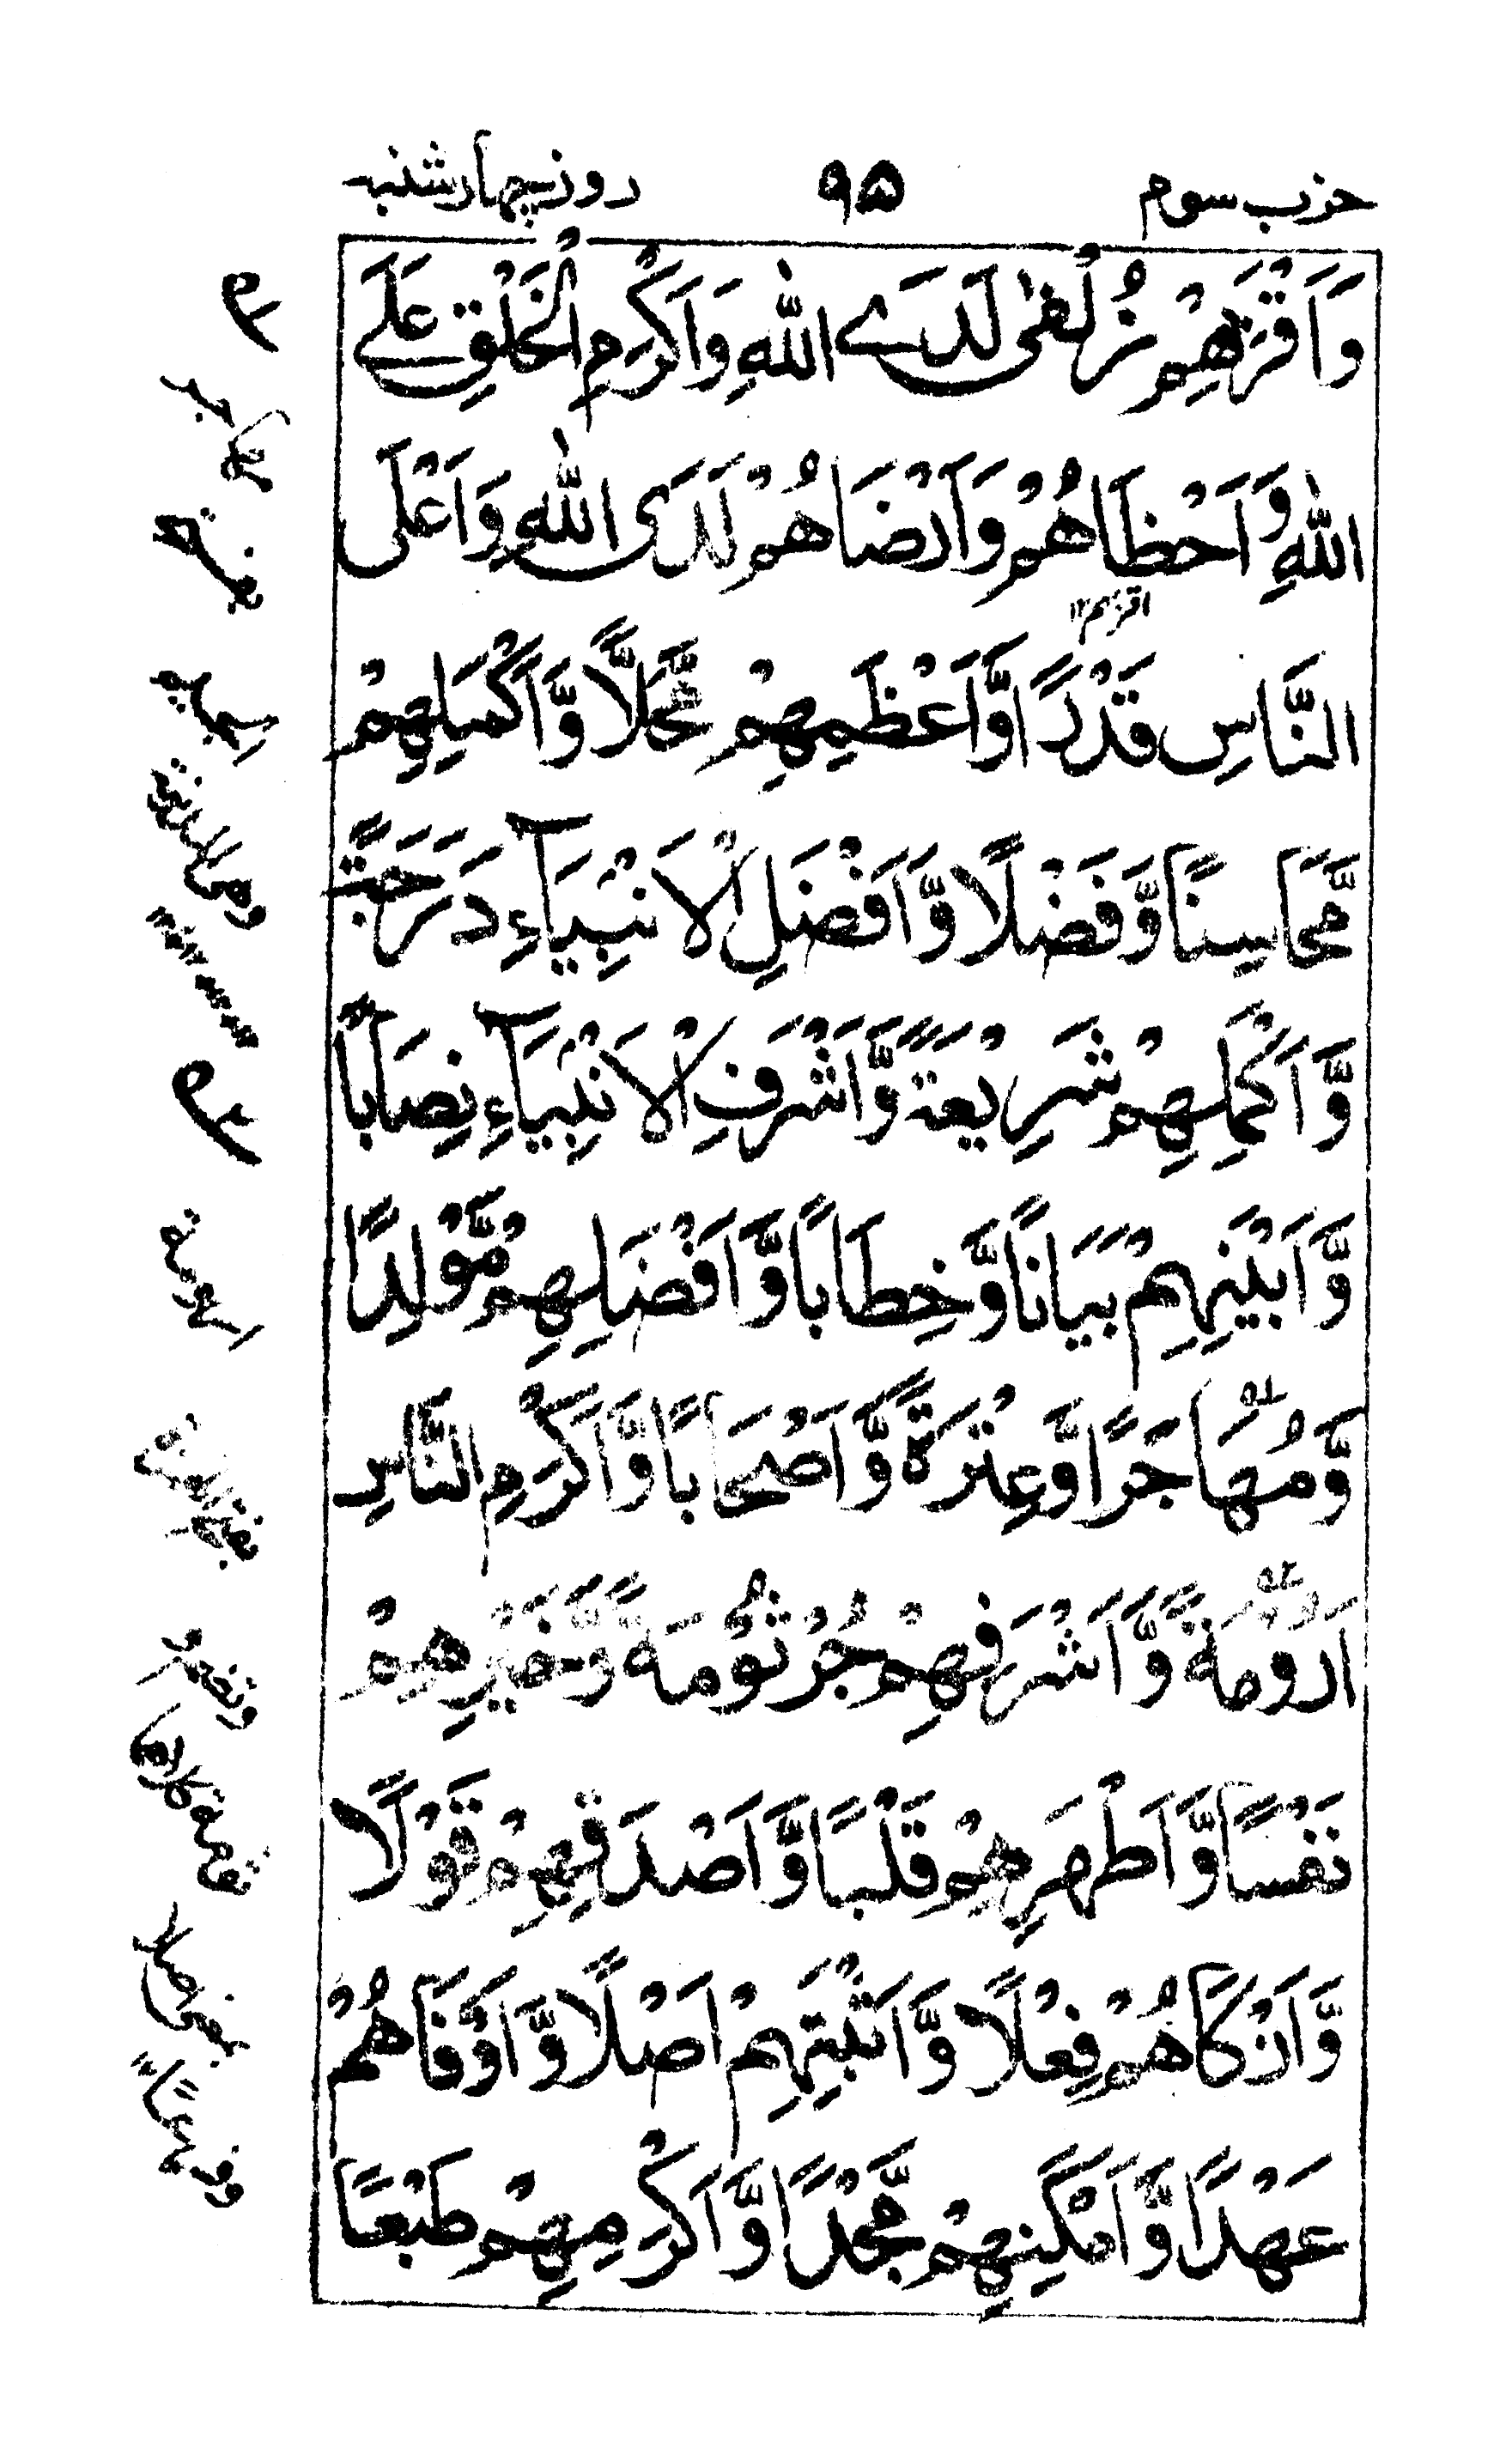 حزب سوم ۹۵ روز چهارشنبہ
وَاَقْرَبِهِمْ زُلْفٰی لَدَے اللّٰهِ وَاَكْرَمِ الْخَلْقِ عَلَے
اللّٰهِ وَاَحْظَاهُمْ وَاَرْضَاهُمْ لَدَی اللّٰهِ وَاَعْلَی
اقربهم ۱۲
النَّاسِ قَدْرًا وَّاَعْظَمِهِمْ مَّحَلًّا وَّاَكْمَلِهِمْ
مَّحَاسِنًا وَّفَضْلًا وَّاَفْضَلِ الْاَنْبِيَآءِ دَرَجَةً
وَّاَكْمَلِهِمْ شَرِيْعَةً وَّاَشْرَفِ الْاَنْبِيَآءِ نِصَابًا
وَّاَبْيَنِهِمْ بَيَانًا وَّخِطَابًا وَّاَفْضَلِهِمْ مَّوْلِدًا
وَّمُهَاجَرًا وَّعِتْرَةً وَّاَصْحَابًا وَّاَكْرَمِ النَّاسِ
اَرُوْمَةً وَّاَشْرَفِهِمْ جُرْثُوْمَةً وَّخَيْرِهِمْ
نَفْسًا وَّاَطْهَرِهِمْ قَلْبًا وَّاَصْدَقِهِمْ قَوْلًا
وَّاَزْكَاهُمْ فِعْلًا وَّاَثْبَتِهِمْ اَصْلًا وَّاَوْفَاهُمْ
عَهْدًا وَّاَمْكَنِهِمْ مَّجْدًا وَّاَكْرَمِهِمْ طَبْعًا